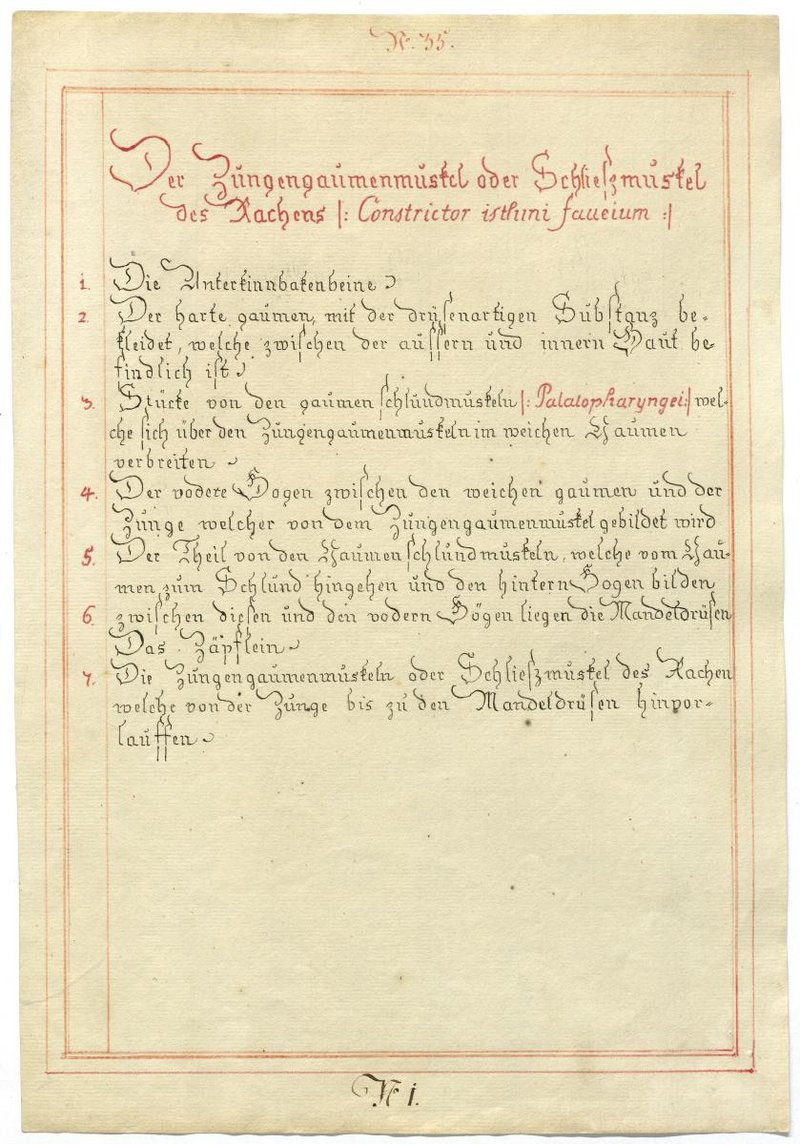 No. 35.
Der Zungengaumenmuskel oder Schlieszmuskel
des Rachens |: Constrictor isthmi faucium :|
1. Die Unterkinnbakenbeine
2. Der harte gaumen, mit der drüsenartigen Substanz be-
kleidet, welche zwischen der aussern und innern Haut be-
findlich ist
3. Stücke von den gaumenschlundmuskeln |: Palatopharyngei :| wel-
che sich über den Zungengaumenmuskeln im weichen Gaumen
verbreiten
4. Der vodere Bogen zwischen den weichen gaumen und der
Zunge welcher von dem Zungengaumenmuskel gebildet wird
5. Der Theil von den Gaumenschlundmuskeln, welche vom Gau-
men zum Schlund hingehen und den hintern Bogen bilden
6. zwischen diesen und den vodern Bögen liegen die Mandeldrüsen
Das Zäpflein
7. Die Zungengaumenmuskeln oder Schlieszmuskel des Rachen
welche von der Zunge bis zu den Mandeldrüsen hinvor-
lauffen
No 1.